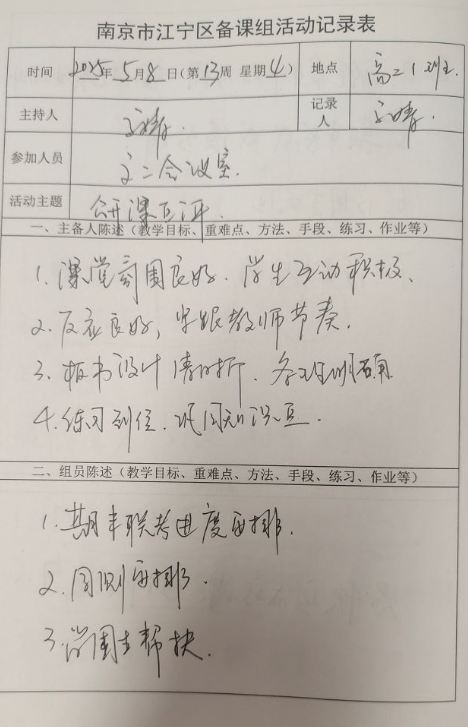 南京市江宁区备课组活动记录表
时间 2025年5月8日(第13周 星期4) 地点 高二1班
主持人 记录人
参加人员 会议室.
活动主题 公开课互评.
一、主备人陈述(教学目标、重难点、方法、手段、练习、作业等)
1. 课堂氛围良好. 学生互动积极、
2. 反应良好, 紧跟教师节奏.
3. 板书设计清晰. 条理明确
4. 练习到位. 巩固知识点.
二、组员陈述(教学目标、重难点、方法、手段、练习、作业等)
1. 期末联考进度安排.
2. 周测安排.
3. 学困生帮扶.